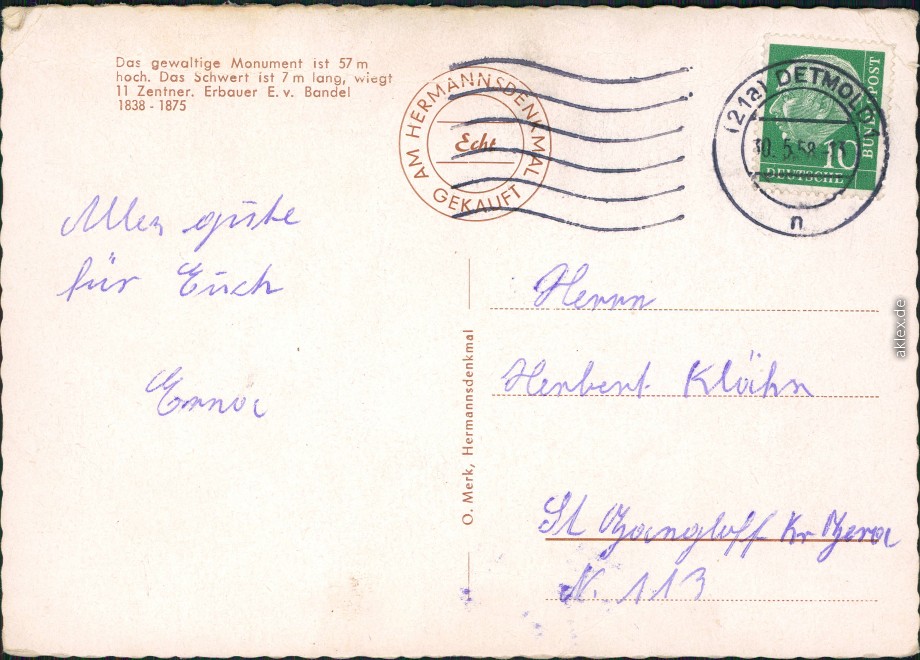 Das gewaltige Monument ist 57 m
hoch. Das Schwert ist 7 m lang, wiegt
11 Zentner. Erbauer E. v. Bandel
1838 - 1875
AM HERMANNSDENKMAL
Echt
GEKAUFT
(21a) DETMOLD 1
30.5.58
n
10
DEUTSCHE
BUNDESPOST
Alles gute
für Euch
Erna
Herrn
Herbert Klähn
St Gangloff Kr Gera
N. 113
O. Merk, Hermannsdenkmal
aklex.de